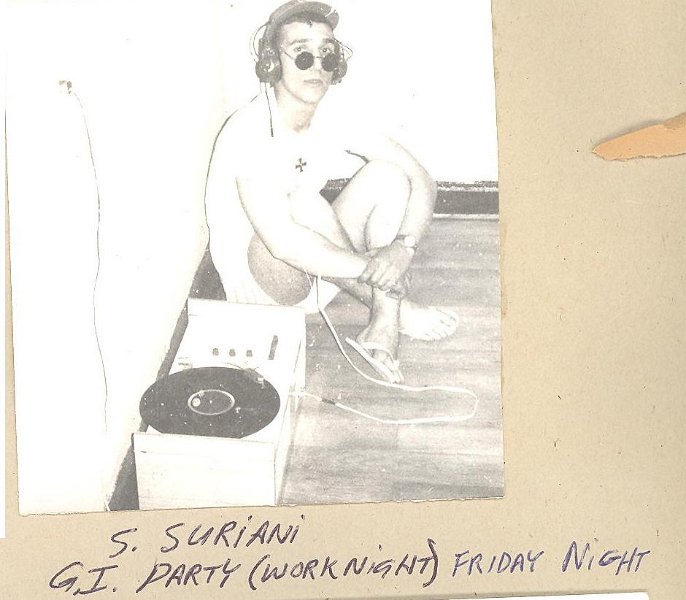 S. SURIANI
G.I. PARTY (WORK NIGHT) FRIDAY NIGHT